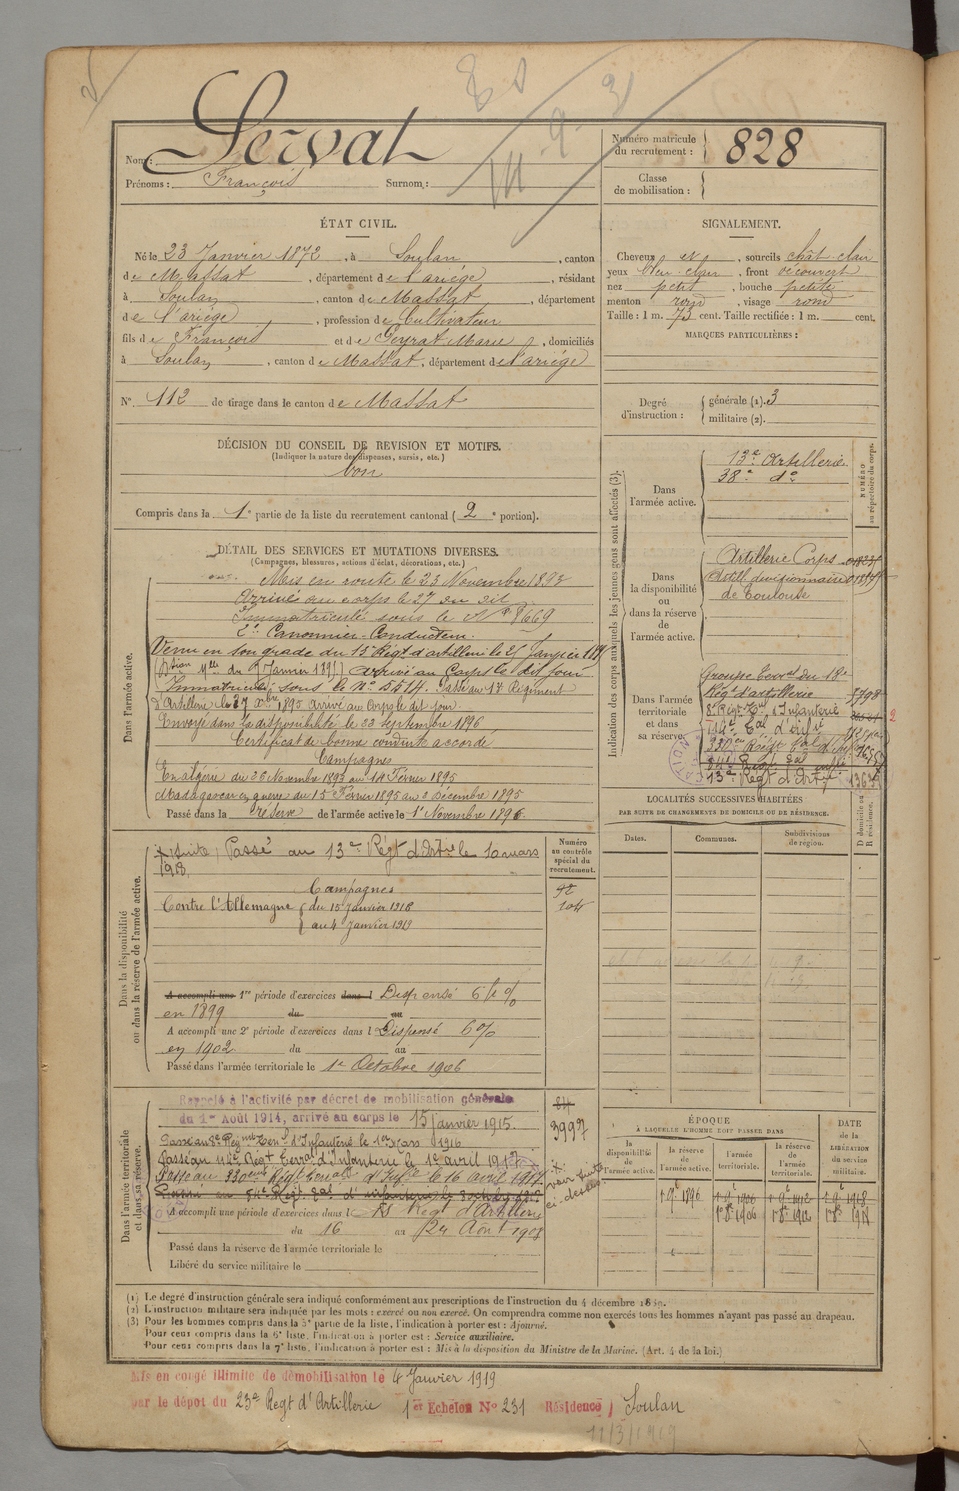 Nom : Servat
Prénoms : François Surnom :
Numéro matricule du recrutement : 828
Classe de mobilisation :
ÉTAT CIVIL.
Né le 23 Janvier 1872, à Soulan, canton
de Massat, département de l'ariége, résidant
à Soulan, canton de Massat, département
de l'ariége, profession de Cultivateur
fils de François et de Peyrat Marie, domiciliés
à Soulan, canton de Massat, département de l'ariége
N° 112 de tirage dans le canton de Massat
DÉCISION DU CONSEIL DE REVISION ET MOTIFS.
(Indiquer la nature des dispenses, sursis, etc.)
bon
Compris dans la 1e partie de la liste du recrutement cantonal (2e portion).
DÉTAIL DES SERVICES ET MUTATIONS DIVERSES.
(Campagnes, blessures, actions d'éclat, décorations, etc.)
Dans l'armée active.
Mis en route le 23 Novembre 1893
Arrivé au corps le 27 du dit
Immatriculé sous le N° 8669
2e Canonnier-Conducteur
Venu en son grade du 13e Régt d'artillerie le 25 Janvier
Arrivé au Corps le dit jour
Immatriculé sous le N° D514. Passé au 13e Régiment
d'Artillerie le 27 Xbre 1895 arrivé au Corps le dit jour
Envoyé dans la disponibilité le 22 septembre 1896
Certificat de bonne conduite accordé
Campagnes
En algérie du 26 Novembre 1893 au 14 Février 1895
Madagascar en guerre du 15 Février 1895 au 2 Décembre 1895
Passé dans la réserve de l'armée active le 1er Novembre 1896
Dans la disponibilité ou dans la réserve de l'armée active.
Numéro au contrôle spécial du recrutement.
(suite) Passé au 13e Régt d'Artie le 10 mars
1918
Campagnes
Contre l'Allemagne { du 15 Janvier 1918
au 4 Janvier 1919
A accompli une 1re période d'exercices dans l Dispensé 6 %
en 1899 du au
A accompli une 2e période d'exercices dans l Dispensé 6 %
en 1902 du au
Passé dans l'armée territoriale le 1er Octobre 1906
Dans l'armée territoriale et dans sa réserve.
Rappelé à l'activité par décret de mobilisation générale
du 1er Août 1914, arrivé au corps le 15 janvier 1915.
3997
Passé au 8e Régiment Terrl d'Infanterie le 1er Mars 1916
Passé au 114e Régt Terral d'Infanterie le 1er avril 1917
Passé au 330eme Régt Terral d'Infie le 16 avril 1917
A accompli une période d'exercices dans l Régt d'Artillerie
du 16 au 24 Août 1908
voir suite ci dessus
Passé dans la réserve de l'armée territoriale le
Libéré du service militaire le
SIGNALEMENT.
Cheveux, sourcils chât-clair
yeux bleu-clair, front découvert
nez petit, bouche petite
menton rond, visage rond
Taille : 1 m. 73 cent. Taille rectifiée : 1 m. cent.
MARQUES PARTICULIÈRES :
Degré d'instruction : générale (1). 3
militaire (2).
Indication des corps auxquels les jeunes gens sont affectés (3).
NUMÉRO au répertoire du corps.
Dans l'armée active.
13e Artillerie
38e do
Dans la disponibilité ou dans la réserve de l'armée active.
Artillerie Corps
Artill. divisionnaire
de Toulouse
Dans l'armée territoriale et dans sa réserve.
Groupe Terral du 18e
Régt d'artillerie 5798
8e Régt Tal d'Infanterie
114e Tal d'infie
330e Régt Tal d'inf
13e Régt d'Artie
LOCALITÉS SUCCESSIVES HABITÉES
PAR SUITE DE CHANGEMENTS DE DOMICILE OU DE RÉSIDENCE.
D domicile ou R résidence.
Dates. Communes. Subdivisions de région.
ÉPOQUE
À LAQUELLE L'HOMME DOIT PASSER DANS
DATE DE LA LIBÉRATION du service militaire.
la disponibilité de l'armée active. la réserve de l'armée active. l'armée territoriale. la réserve de l'armée territoriale.
1 9e 1896 1 9e 1906 1 9e 1912 1 9e 1918
1er 8e 1906 1er 8e 1912 1er 8e 1918
(1) Le degré d'instruction générale sera indiqué conformément aux prescriptions de l'instruction du 4 décembre 1889.
(2) L'instruction militaire sera indiquée par les mots : exercé ou non exercé. On comprendra comme non exercés tous les hommes n'ayant pas passé au drapeau.
(3) Pour les hommes compris dans la 5e partie de la liste, l'indication à porter est : Ajourné.
Pour ceux compris dans la 6e liste, l'indication à porter est : Service auxiliaire.
Pour ceux compris dans la 7e liste, l'indication à porter est : Mis à la disposition du Ministre de la Marine. (Art. 4 de la loi.)
Mis en congé illimité de démobilisation le 4 Janvier 1919
par le dépôt du 23e Régt d'Artillerie 1er Echelon N° 231 Résidence) Soulan
11/3/1919